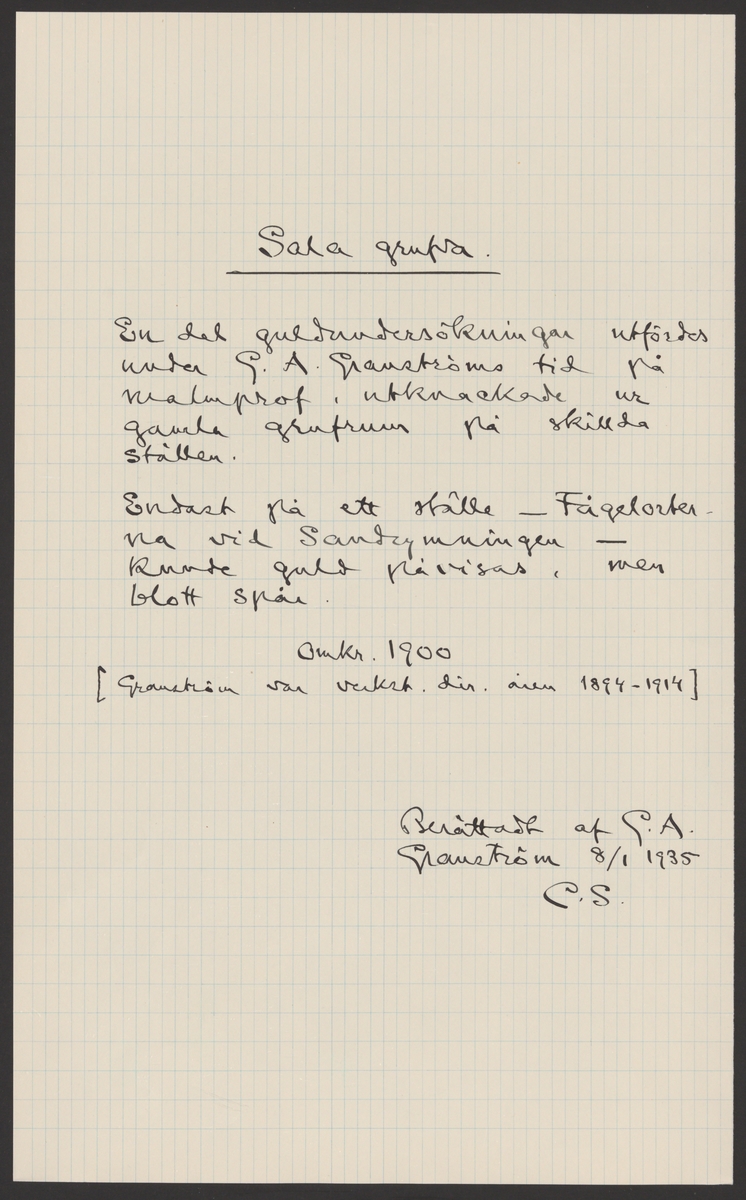 Sala grufva.
En del guldundersökningar utfördes
under G. A. Granströms tid på
malmprof, utknackade ur
gamla grufrum på skillda
ställen.
Endast på ett ställe — Fågelorter-
na vid Sandrymningen —
kunde guld påvisas, men
blott spår.
Omkr. 1900
[Granström var verkst. dir. åren 1894-1914]
Berättadt af G.A.
Granström 8/1 1935
C.S.